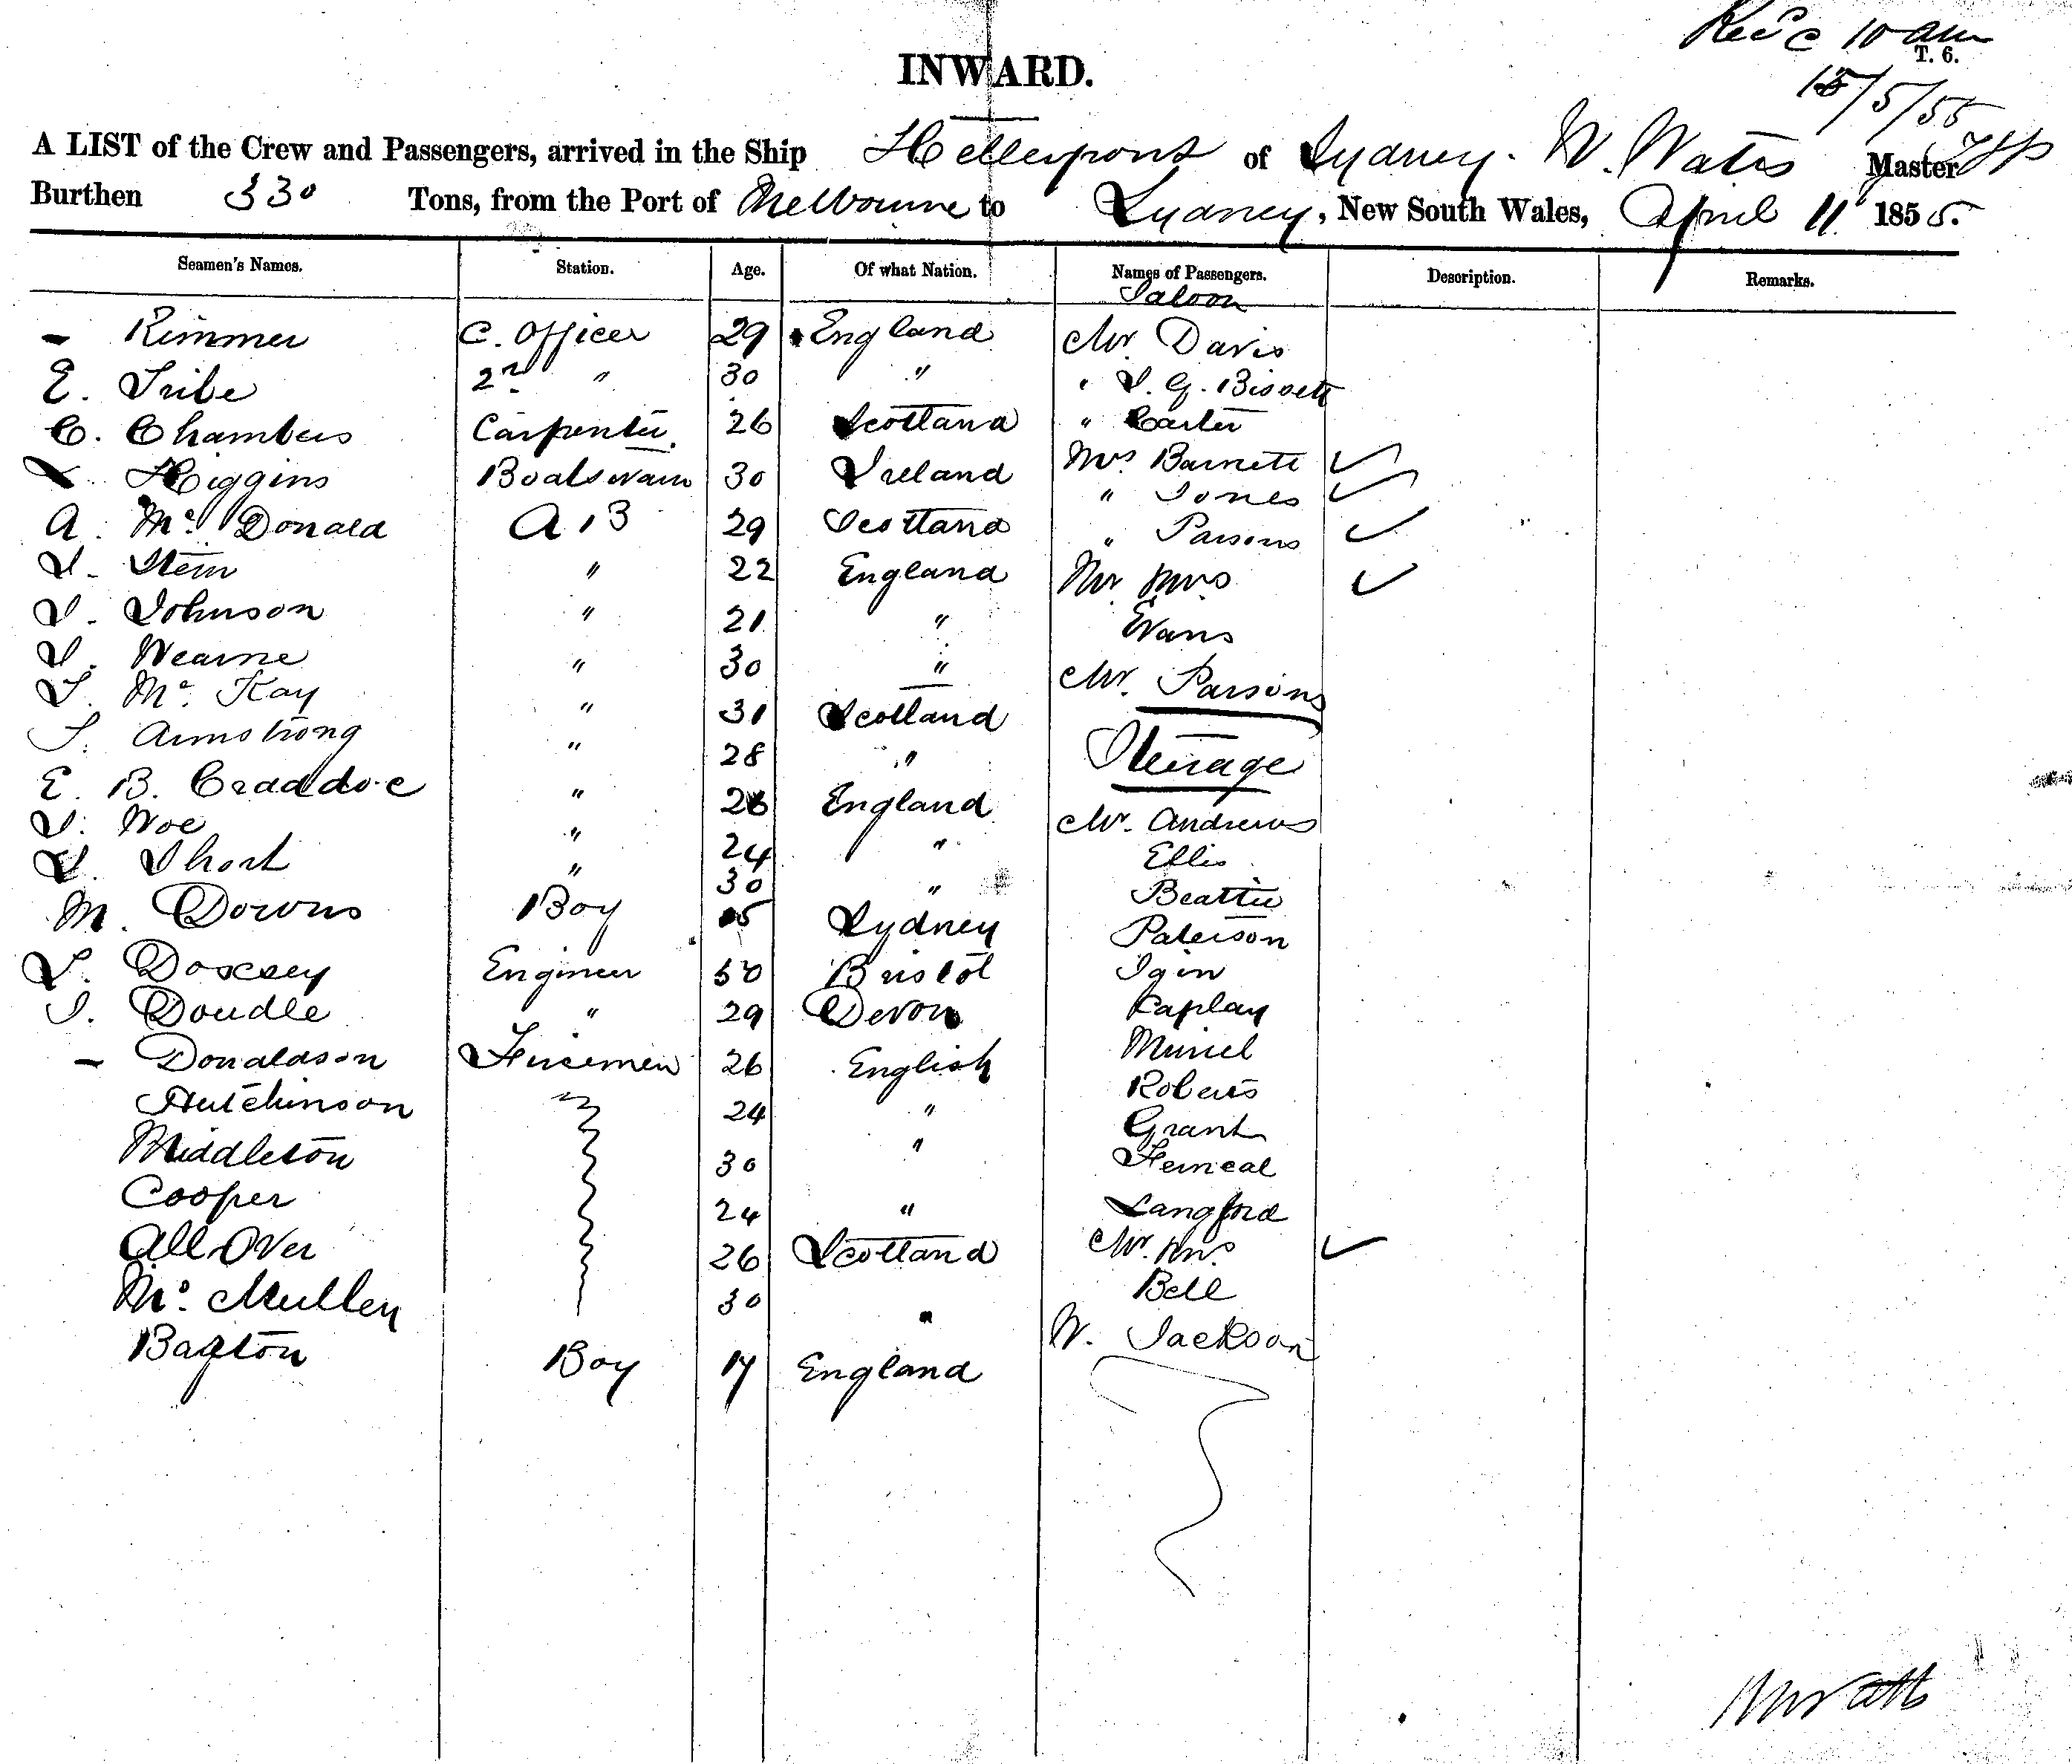 Rec'd 10 am
T. 6.
15/5/55
INWARD.
A LIST of the Crew and Passengers, arrived in the Ship Hellespont of Sydney. W. Watts Master
Burthen 330 Tons, from the Port of Melbourne to Sydney, New South Wales, April 11 1855.
Seamen's Names. Station. Age. Of what Nation. Names of Passengers. Description. Remarks.
Saloon
– Rimmer C. Officer 29 England Mr. Davis
E. Tribe 2nd " 30 " " J. G. Bissett
C. Chambers Carpenter. 26 Scotland " Carter
Higgins Boatswain 30 Ireland Mrs Barnett ✓
A. Mc. Donald A B 29 Scotland " Jones ✓
" Parsons ✓
J. Stein " 22 England Mr Mrs ✓
J. Johnson " 21 " Evans
J. Wearne " 30 " Mr. Parsons
J. Mc. Kay " 31 Scotland
J. Armstrong " 28 " Steerage
E. B. Craddoc " 26 England Mr. Andrews
J. Noe " 24 " Ellis
Short " 30 " Beattie
M. Downs Boy 15 Sydney Paterson
Doxsey Engineer 50 Bristol Igin
J. Doudle " 29 Devon Kaplay
– Donaldson Firemen 26 English Muriel
Hutchinson 24 " Roberts
Grant
Middleton 30 " Ferneal
Cooper 24 " Langford
All Over 26 Scotland Mr. Mrs. ✓
Mc. Mullen 30 " Bell
W. Jackson
Baxton Boy 17 England
W Watts